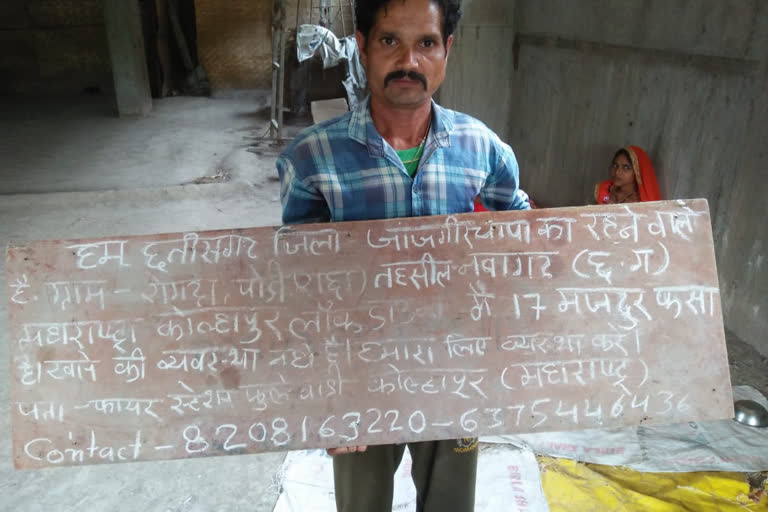 हम छत्तीसगढ जिला जांजगीरचांपा का रहने वाले
है. ग्राम - रोगदा, पोडी (राछा) तहसील-नवागढ (छ.ग)
महाराष्ट्रा कोल्हापुर लॉक डाउन में 17 मजदुर फसा
है। खाने की व्यवस्था नही है। हमारा लिए व्यस्था करे।
पता - फायर स्टेशन फुले वाडी कोल्हापूर (महाराष्ट्र)
Contact - 8208163220-6375446436